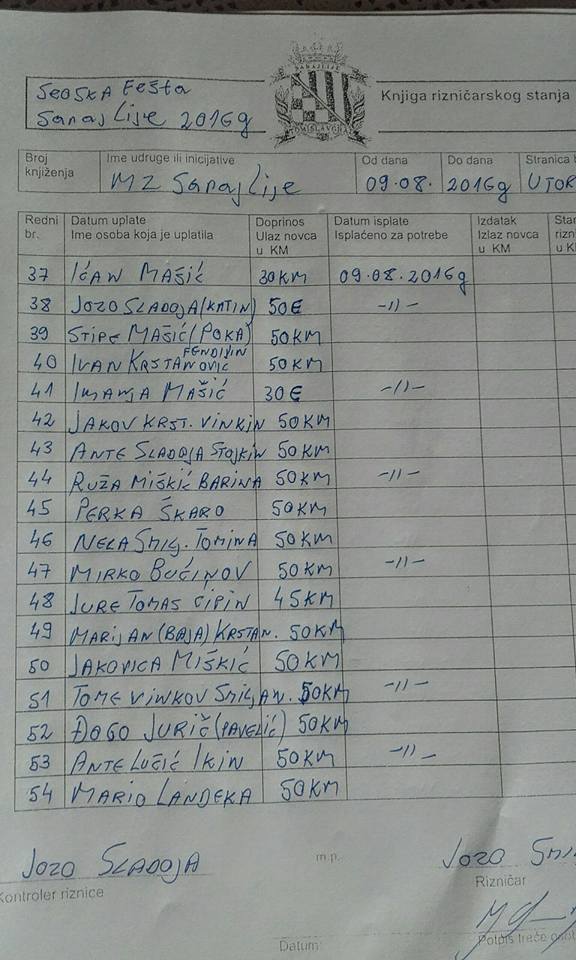 SEOSKA FEŠTA
SARAJLIJE 2016g
SARAJLIJE
TOMISLAVGRAD
Knjiga rizničarskog stanja
Broj knjiženja
Ime udruge ili inicijative
MZ SARAJLIJE
Od dana
09.08.
Do dana
2016g
Stranica
UTOR
Redni br.
Datum uplate
Ime osoba koja je uplatila
Doprinos
Ulaz novca
u KM
Datum isplate
Isplaćeno za potrebe
Izdatak
Izlaz novca
u KM
37 IĆAN MAŠIĆ 30KM 09.08.2016g
38 JOZO SLADOJA (KATIN) 50€ -11-
39 STIPE MAŠIĆ (POKA) 50KM
40 IVAN KRSTANOVIĆ FENDIVIN 50KM
41 IMANJA MAŠIĆ 30€ -11-
42 JAKOV KRST. VINKIN 50KM
43 ANTE SLADOJA STOJKIN 50KM
44 RUŽA MIŠKIĆ BARINA 50KM -11-
45 PERKA ŠKARO 50KM
46 NELA SMILJ. TOMINA 50KM
47 MIRKO BUĆINOV 50KM -11-
48 JURE TOMAS CIPIN 45KM
49 MARIJAN (BAJA) KRSTAN. 50KM
50 JAKOVICA MIŠKIĆ 50KM
51 TOME VINKOV SMILJAN. 50KM -11-
52 ĐOGO JURIČ (PAVELIĆ) 50KM
53 ANTE LUČIĆ IKIN 50KM -11-
54 MARIO LANDEKA 50KM
JOZO SLADOJA
Kontroler riznice
m.p.
JOZO
Rizničar
Datum:
Potpis treće